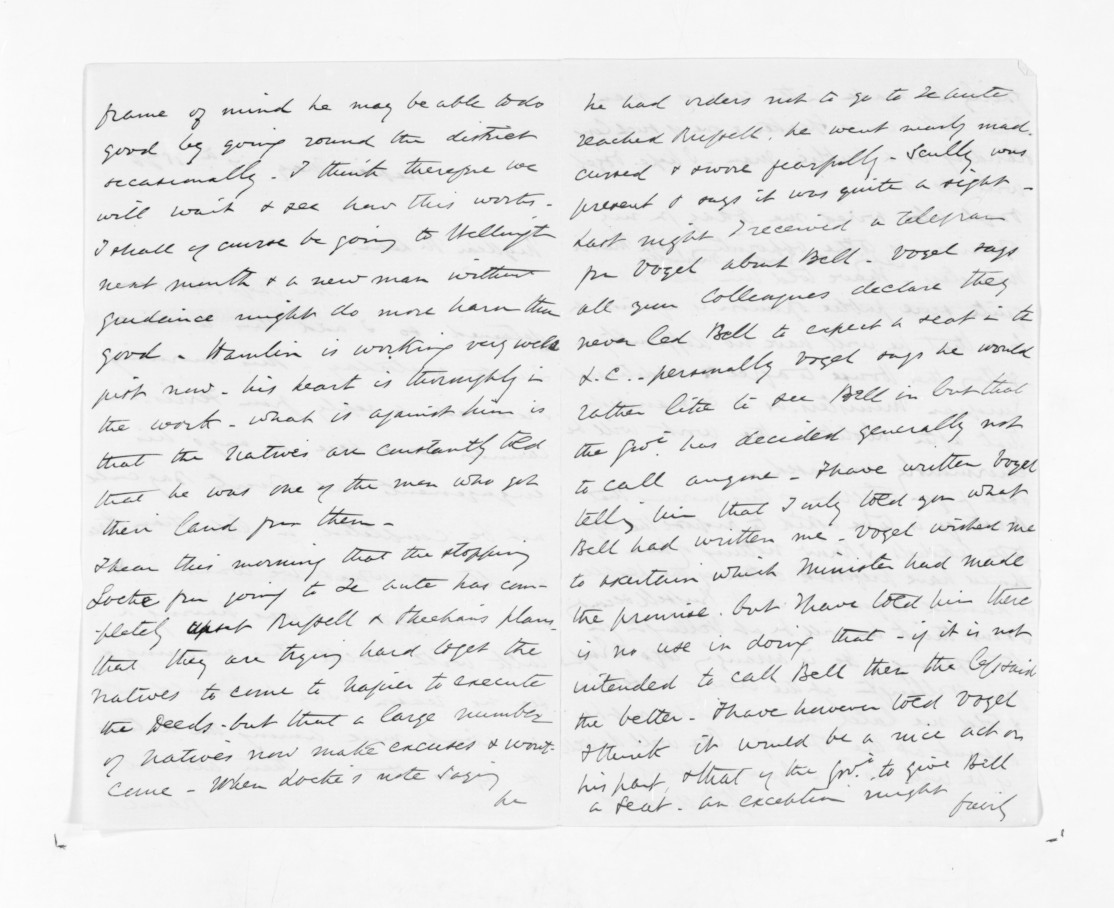 frame of mind he may be able to do
good by going round the district
occasionally. I think therefore we
will wait & see how this works.
I shall of course be going to Wellingtn
next month & a new man without
guidance might do more harm than
good. Hamlin is working very well
just now. his heart is thoroughly in
the work. what is against him is
that the Natives are constantly told
that he was one of the men who got
their land from them.
I hear this morning that the stopping
Locke from going to Te Aute has com-
-pletely upset Russell & Sheehan's plans.
that they are trying hard to get the
Natives to come to Napier to execute
the Deeds. but that a large number
of Natives now make excuses & wont
come. When Locke's note saying
he
he had orders not to go to Te Aute
reached Russell he went nearly mad.
cursed & swore fearfully. Scully was
present & says it was quite a sight.
Last night I received a telegram
from Vogel about Bell. Vogel says
all your Colleagues declare they
never led Bell to expect a seat in the
L.C. personally Vogel says he would
rather like to see Bell in but that
the Govt. has decided generally not
to call anyone. I have written Vogel
telling him that I only told you what
Bell had written me. Vogel wished me
to ascertain which Minister had made
the promise. but I have told him there
is no use in doing that. if it is not
intended to call Bell then the less said
the better. I have however told Vogel
I think it would be a nice act on
his part, & that of the Govt. to give Bell
a seat. an exception might
fairly